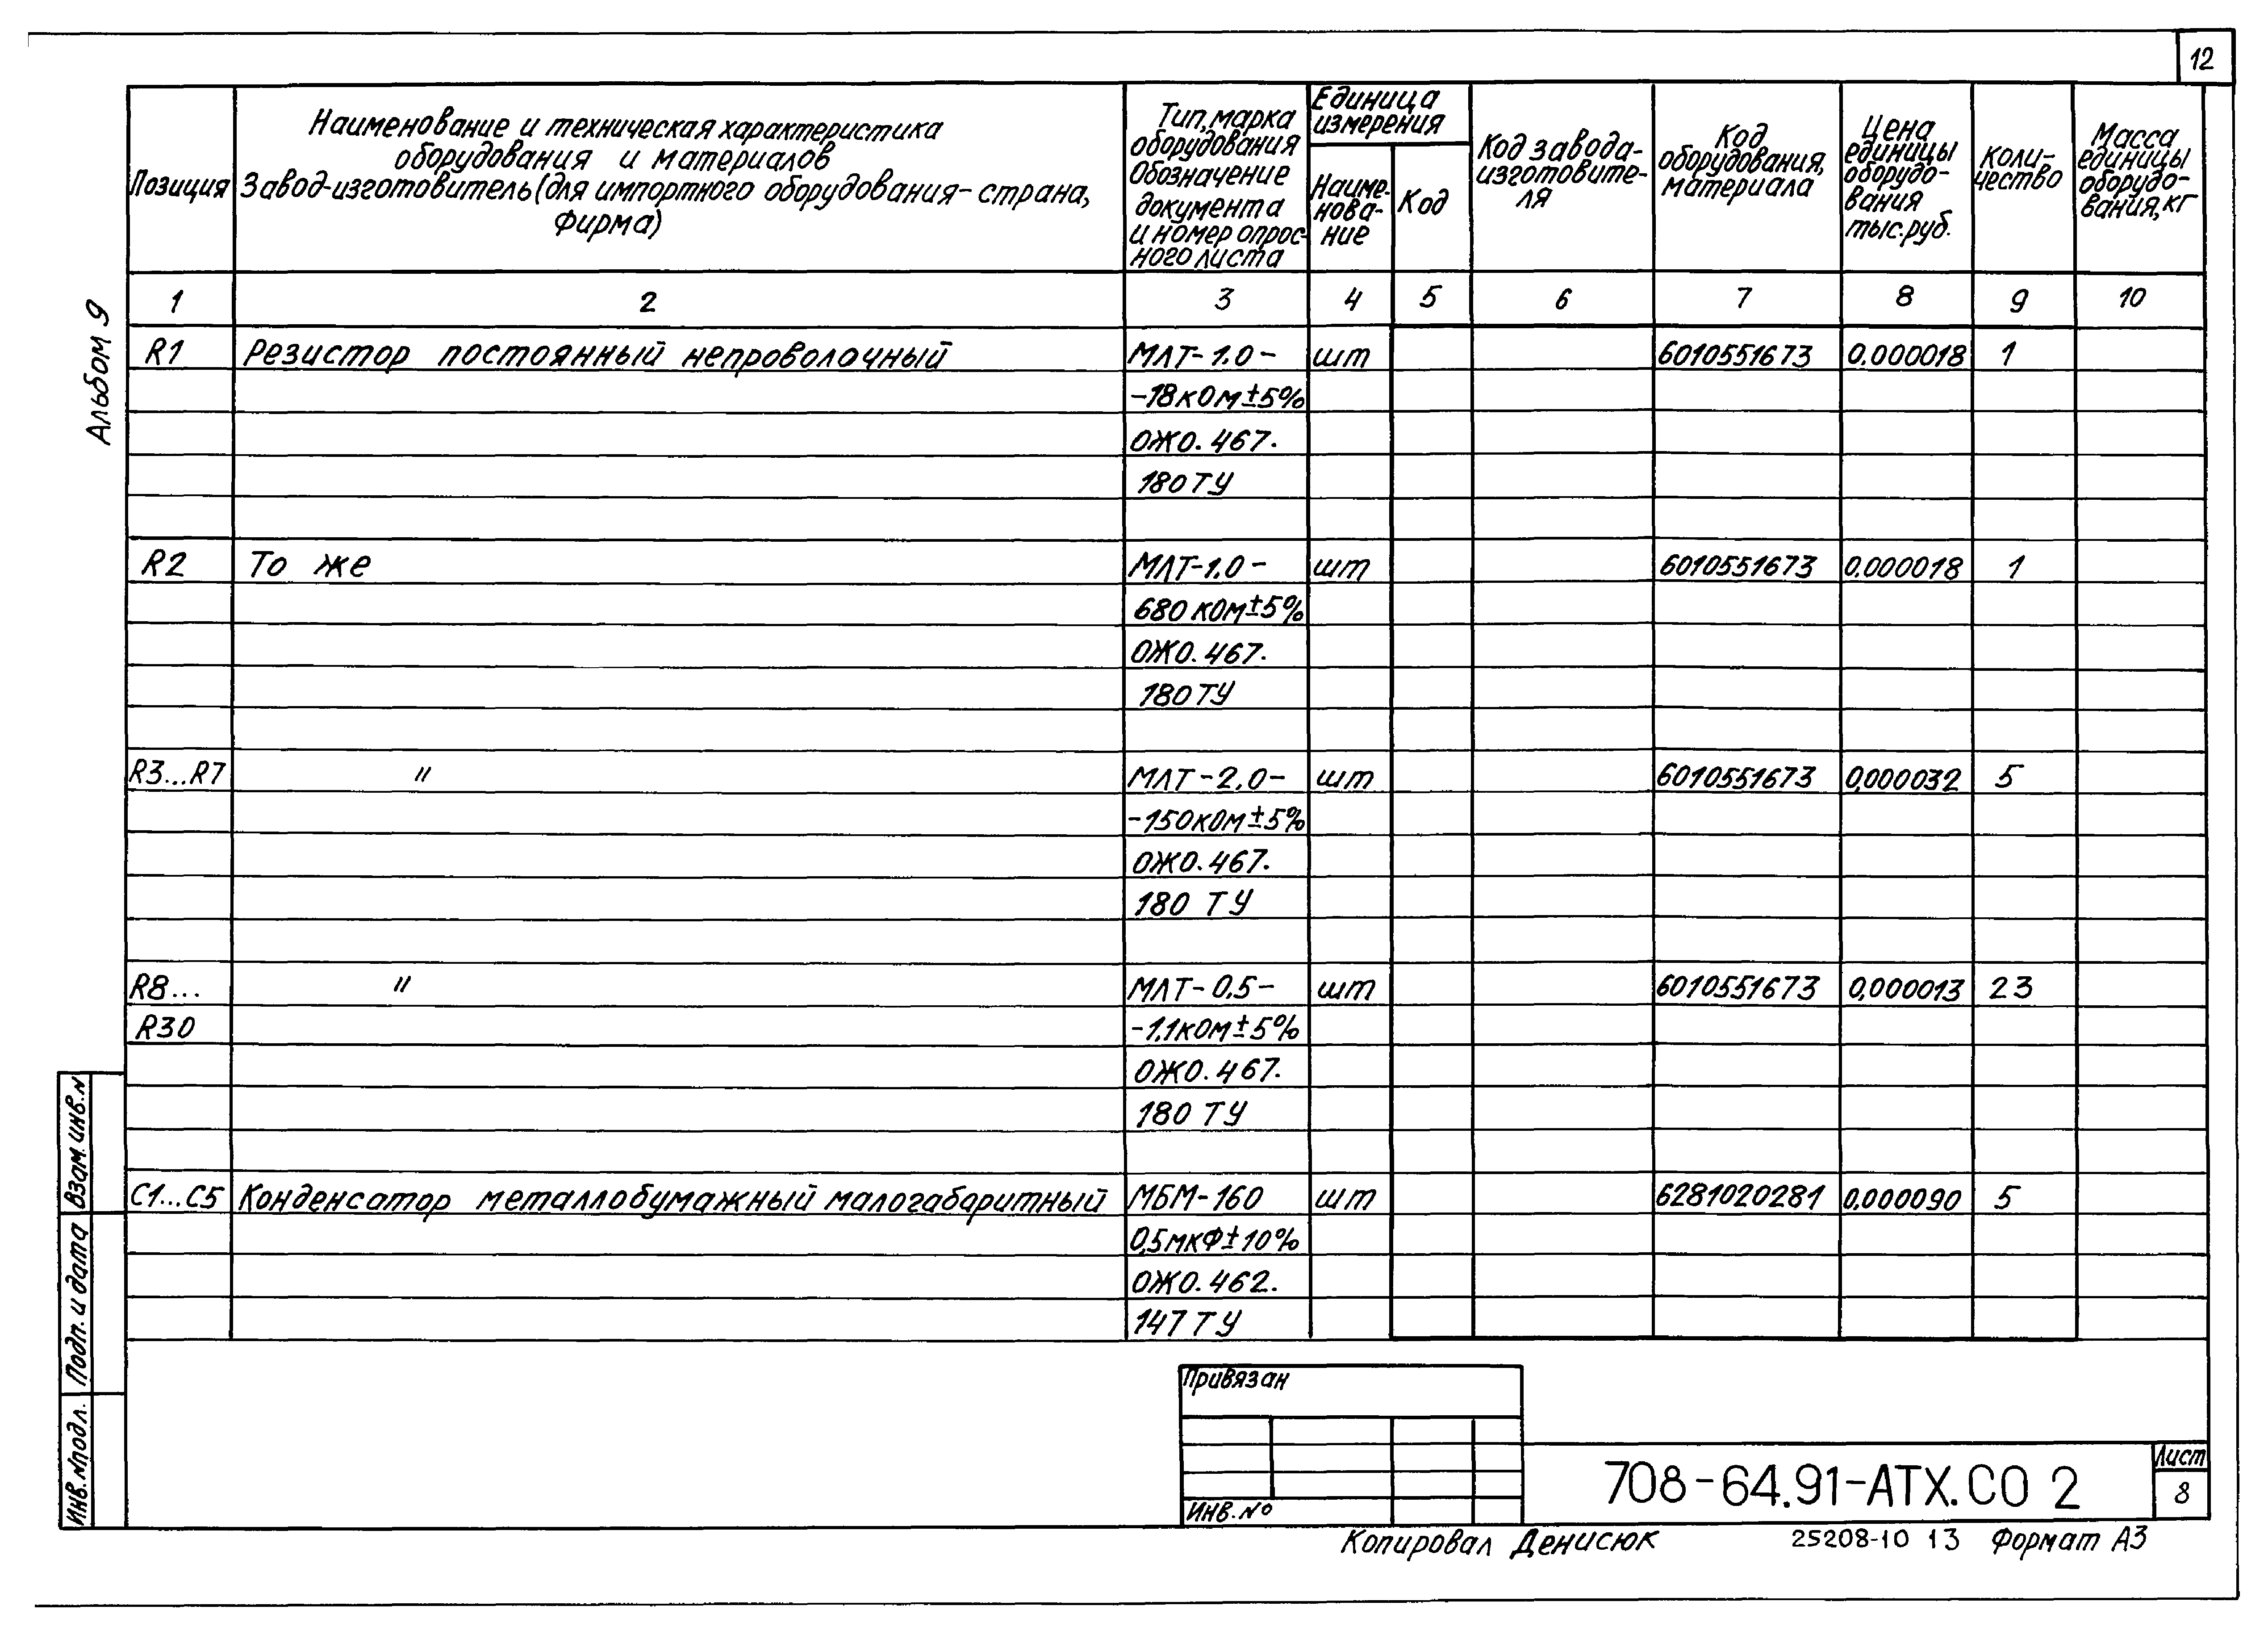 12
Альбом 9
Позиция
Наименование и техническая характеристика
оборудования и материалов
Завод-изготовитель (для импортного оборудования - страна,
фирма)
Тип, марка
оборудования
Обозначение
документа
и номер опрос-
ного листа
Единица
измерения
Наиме-
нова-
ние
Код
Код завода-
изготовите-
ля
Код
оборудования,
материала
Цена
единицы
оборудо-
вания
тыс.руб.
Коли-
чество
Масса
единицы
оборудо-
вания, кг
1 2 3 4 5 6 7 8 9 10
R1 Резистор постоянный непроволочный МЛТ-1.0- шт 6010551673 0,000018 1
-18кОм±5%
ОЖО.467.
180ТУ
R2 То же МЛТ-1,0- шт 6010551673 0,000018 1
680 кОм±5%
ОЖО.467.
180ТУ
R3...R7 " МЛТ-2,0- шт 6010551673 0,000032 5
-150кОм±5%
ОЖО.467.
180 ТУ
R8... " МЛТ-0,5- шт 6010551673 0,000013 23
R30 -1,1кОм±5%
ОЖО.467.
180 ТУ
С1...С5 Конденсатор металлобумажный малогабаритный МБМ-160 шт 6281020281 0,000090 5
0,5мкФ±10%
ОЖО.462.
147 ТУ
Взам. инв. N
Подп. и дата
Инв. N подл.
Привязан
Инв. №
708-64.91-АТХ.СО 2
Лист
8
Копировал Денисюк 25208-10 13 Формат А3